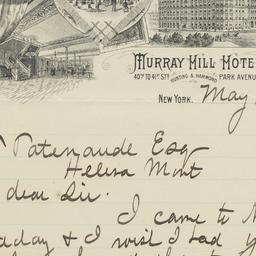 MURRAY HILL HOTE
40TH TO 41ST STS HUNTING & HAMMOND PARK AVENUE
NEW YORK. May
Patenaude Esq
Helena Mont
dear Sir.
I came to N
aday & I wish I had y